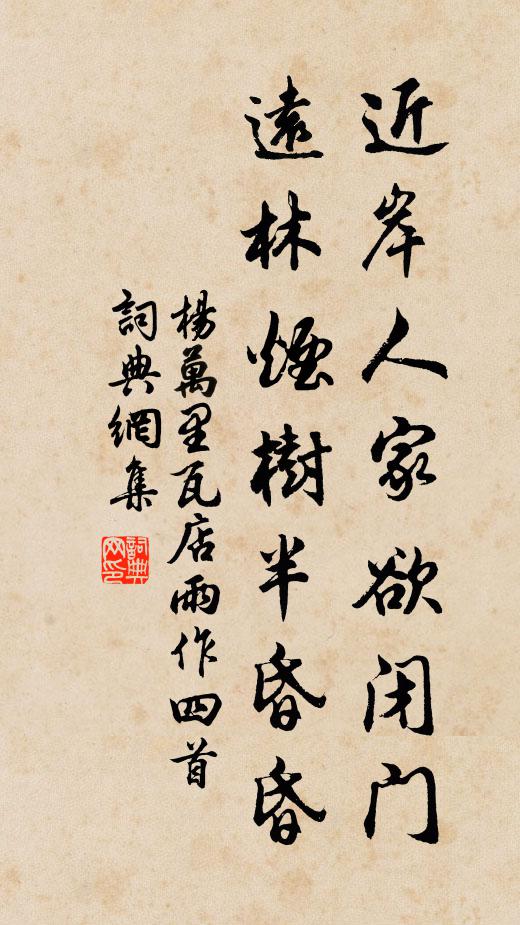 近岸人家欲闭门
遠林煙樹半昏昏
楊萬里瓦店雨作四首
詞典網集
詞典网印